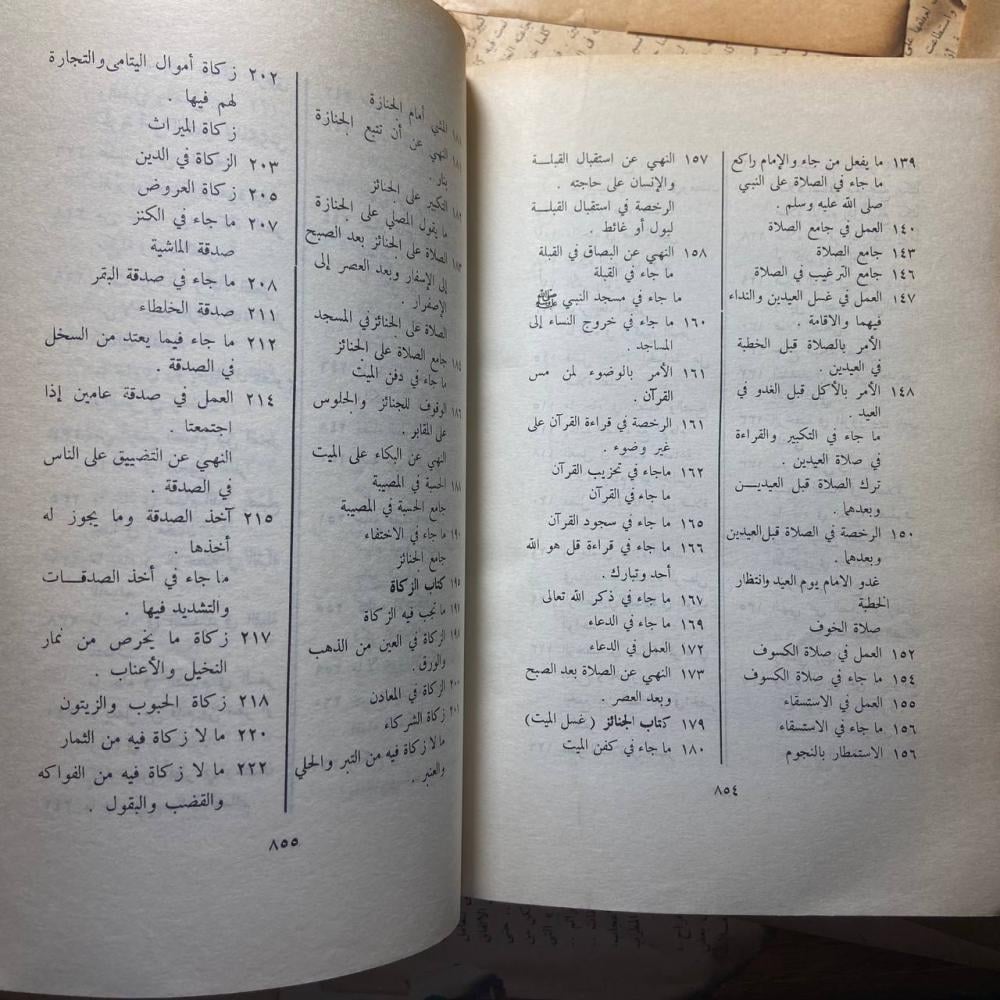 ١٣٩ ما يفعل من جاء والإمام راكع
ما جاء في الصلاة على النبي
صلى الله عليه وسلم .
١٤٠ العمل في جامع الصلاة
١٤٣ جامع الصلاة
١٤٦ جامع الترغيب في الصلاة
١٤٧ العمل في غسل العيدين والنداء
فيهما والاقامة .
الأمر بالصلاة قبل الخطبة
في العيدين .
١٤٨ الأمر بالأكل قبل الغدو في
العيد .
ما جاء في التكبير والقراءة
في صلاة العيدين .
ترك الصلاة قبل العيديــن
وبعدهما .
١٥٠ الرخصة في الصلاة قبل العيدين
وبعدهما .
غدو الامام يوم العيد وانتظار
الخطبة
صلاة الخوف
١٥٢ العمل في صلاة الكسوف
١٥٤ ما جاء في صلاة الكسوف
١٥٥ العمل في الاستسقاء
١٥٦ ما جاء في الاستسقاء
١٥٦ الاستمطار بالنجوم
١٥٧ النهي عن استقبال القبلــة
والإنسان على حاجته .
الرخصة في استقبال القبلــة
لبول أو غائط .
١٥٨ النهي عن البصاق في القبلة
ما جاء في القبلة
ما جاء في مسجد النبي ﷺ
١٦٠ ما جاء في خروج النساء إلى
المساجد .
١٦١ الأمر بالوضوء لمن مس
القرآن .
١٦١ الرخصة في قراءة القرآن على
غير وضوء .
١٦٢ ماجاء في تحزيب القرآن
ما جاء في القرآن
١٦٥ ما جاء في سجود القرآن
١٦٦ ما جاء في قراءة قل هو الله
أحد وتبارك .
١٦٧ ما جاء في ذكر الله تعالى
١٦٩ ما جاء في الدعاء
١٧٢ العمل في الدعاء
١٧٣ النهي عن الصلاة بعد الصبح
وبعد العصر .
١٧٩ كتاب الجنائز ( غسل الميت )
١٨٠ ما جاء في كفن الميت
٨٥٤
المشي أمام الجنازة
النهي عن أن تتبع الجنازة
بنار
التكبير على الجنائز
ما يقول المصلي على الجنازة
الصلاة على الجنائز بعد الصبح
إلى الإسفار وبعد العصر إلى
الإصفرار .
الصلاة على الجنائز في المسجد
جامع الصلاة على الجنائز
ما جاء في دفن الميت
١٨٦ الوقوف للجنائز والجلوس
على المقابر .
النهي عن البكاء على الميت
الحسبة في المصيبة
جامع الحسبة في المصيبة
١٩٠ ما جاء في الاختفاء
جامع الجنائز
١٩٥ كتاب الزكاة
ما تجب فيه الزكاة
الزكاة في العين من الذهب
والورق .
٢٠٠ الزكاة في المعادن
٢٠١ زكاة الشركاء
ما لا زكاة فيه من التبر والحلي
والعنبر .
٢٠٢ زكاة أموال اليتامى والتجارة
لهم فيها .
زكاة الميراث
٢٠٣ الزكاة في الدين
٢٠٥ زكاة العروض
٢٠٧ ما جاء في الكنز
صدقة الماشية
٢٠٨ ما جاء في صدقة البقر
٢١١ صدقة الخلطاء
٢١٢ ما جاء فيما يعتد من السخل
في الصدقة .
٢١٤ العمل في صدقة عامين إذا
اجتمعتا .
النهي عن التضييق على الناس
في الصدقة .
٢١٥ آخذ الصدقة وما يجوز له
أخذها .
ما جاء في أخذ الصدقــات
والتشديد فيها .
٢١٧ زكاة ما يخرص من ثمار
النخيل والأعناب .
٢١٨ زكاة الحبوب والزيتون
٢٢٠ ما لا زكاة فيه من الثمار
٢٢٢ ما لا زكاة فيه من الفواكه
والقضب والبقول .
٨٥٥